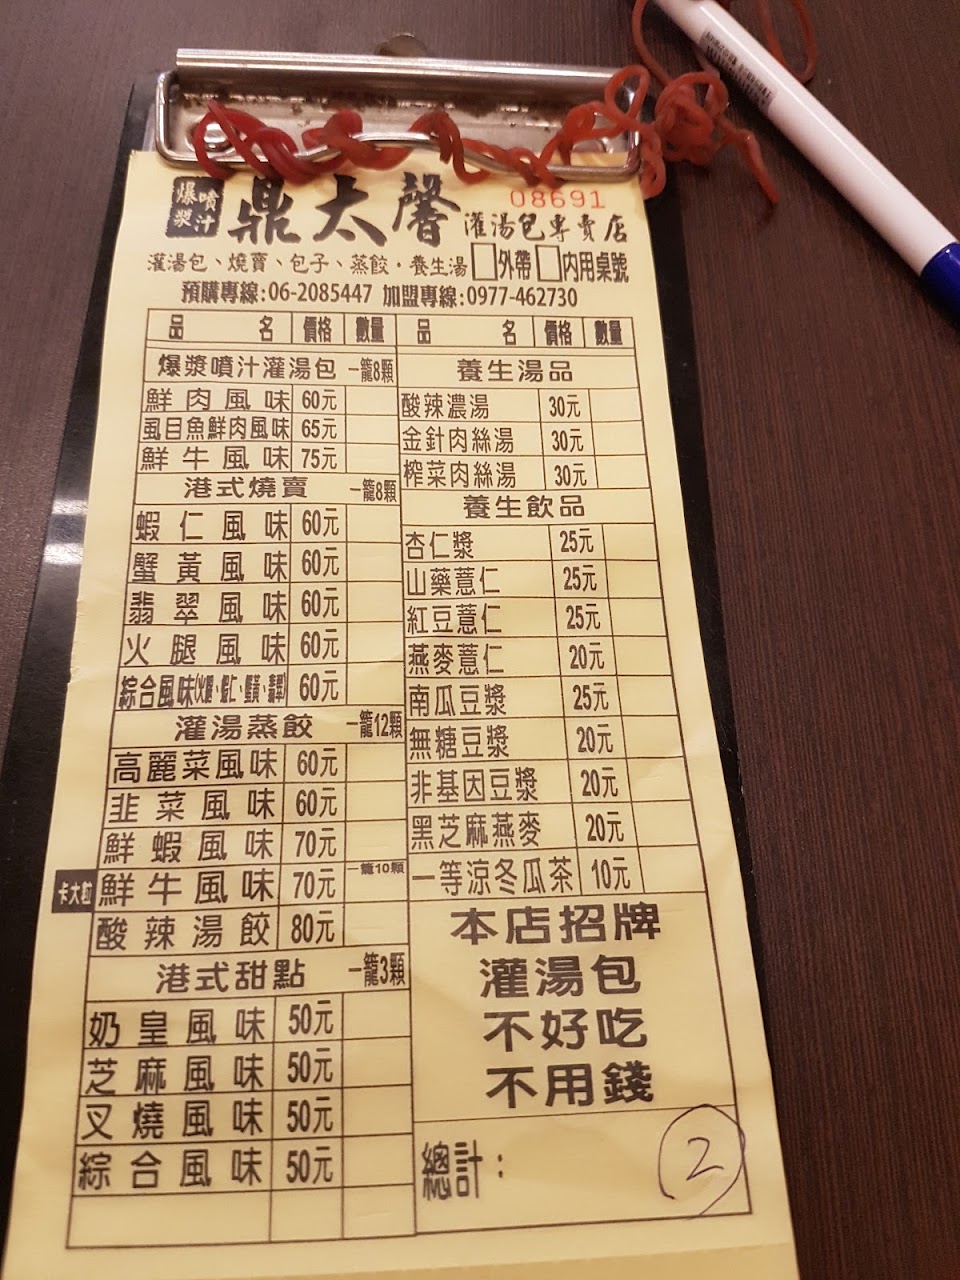 爆漿 噴汁 鼎太馨 灌湯包專賣店
08691
灌湯包、燒賣、包子、蒸餃·養生湯 □外帶 □內用桌號
預購專線:06-2085447 加盟專線:0977-462730
品名 價格 數量
爆漿噴汁灌湯包 一籠8顆
鮮肉風味 60元
虱目魚鮮肉風味 65元
鮮牛風味 75元
港式燒賣 一籠8顆
蝦仁風味 60元
蟹黃風味 60元
翡翠風味 60元
火腿風味 60元
綜合風味(火腿、蝦仁、蟹黃、翡翠) 60元
灌湯蒸餃 一籠12顆
高麗菜風味 60元
韭菜風味 60元
鮮蝦風味 70元
卡大粒 鮮牛風味 70元 一籠10顆
酸辣湯餃 80元
港式甜點 一籠3顆
奶皇風味 50元
芝麻風味 50元
叉燒風味 50元
綜合風味 50元
品名 價格 數量
養生湯品
酸辣濃湯 30元
金針肉絲湯 30元
榨菜肉絲湯 30元
養生飲品
杏仁漿 25元
山藥薏仁 25元
紅豆薏仁 25元
燕麥薏仁 20元
南瓜豆漿 25元
無糖豆漿 20元
非基因豆漿 20元
黑芝麻燕麥 20元
一等涼冬瓜茶 10元
本店招牌
灌湯包
不好吃
不用錢
總計：
2